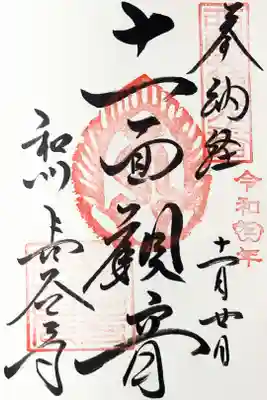 奉納経
令和
十一月廿日
十一面觀音
和州 長谷寺